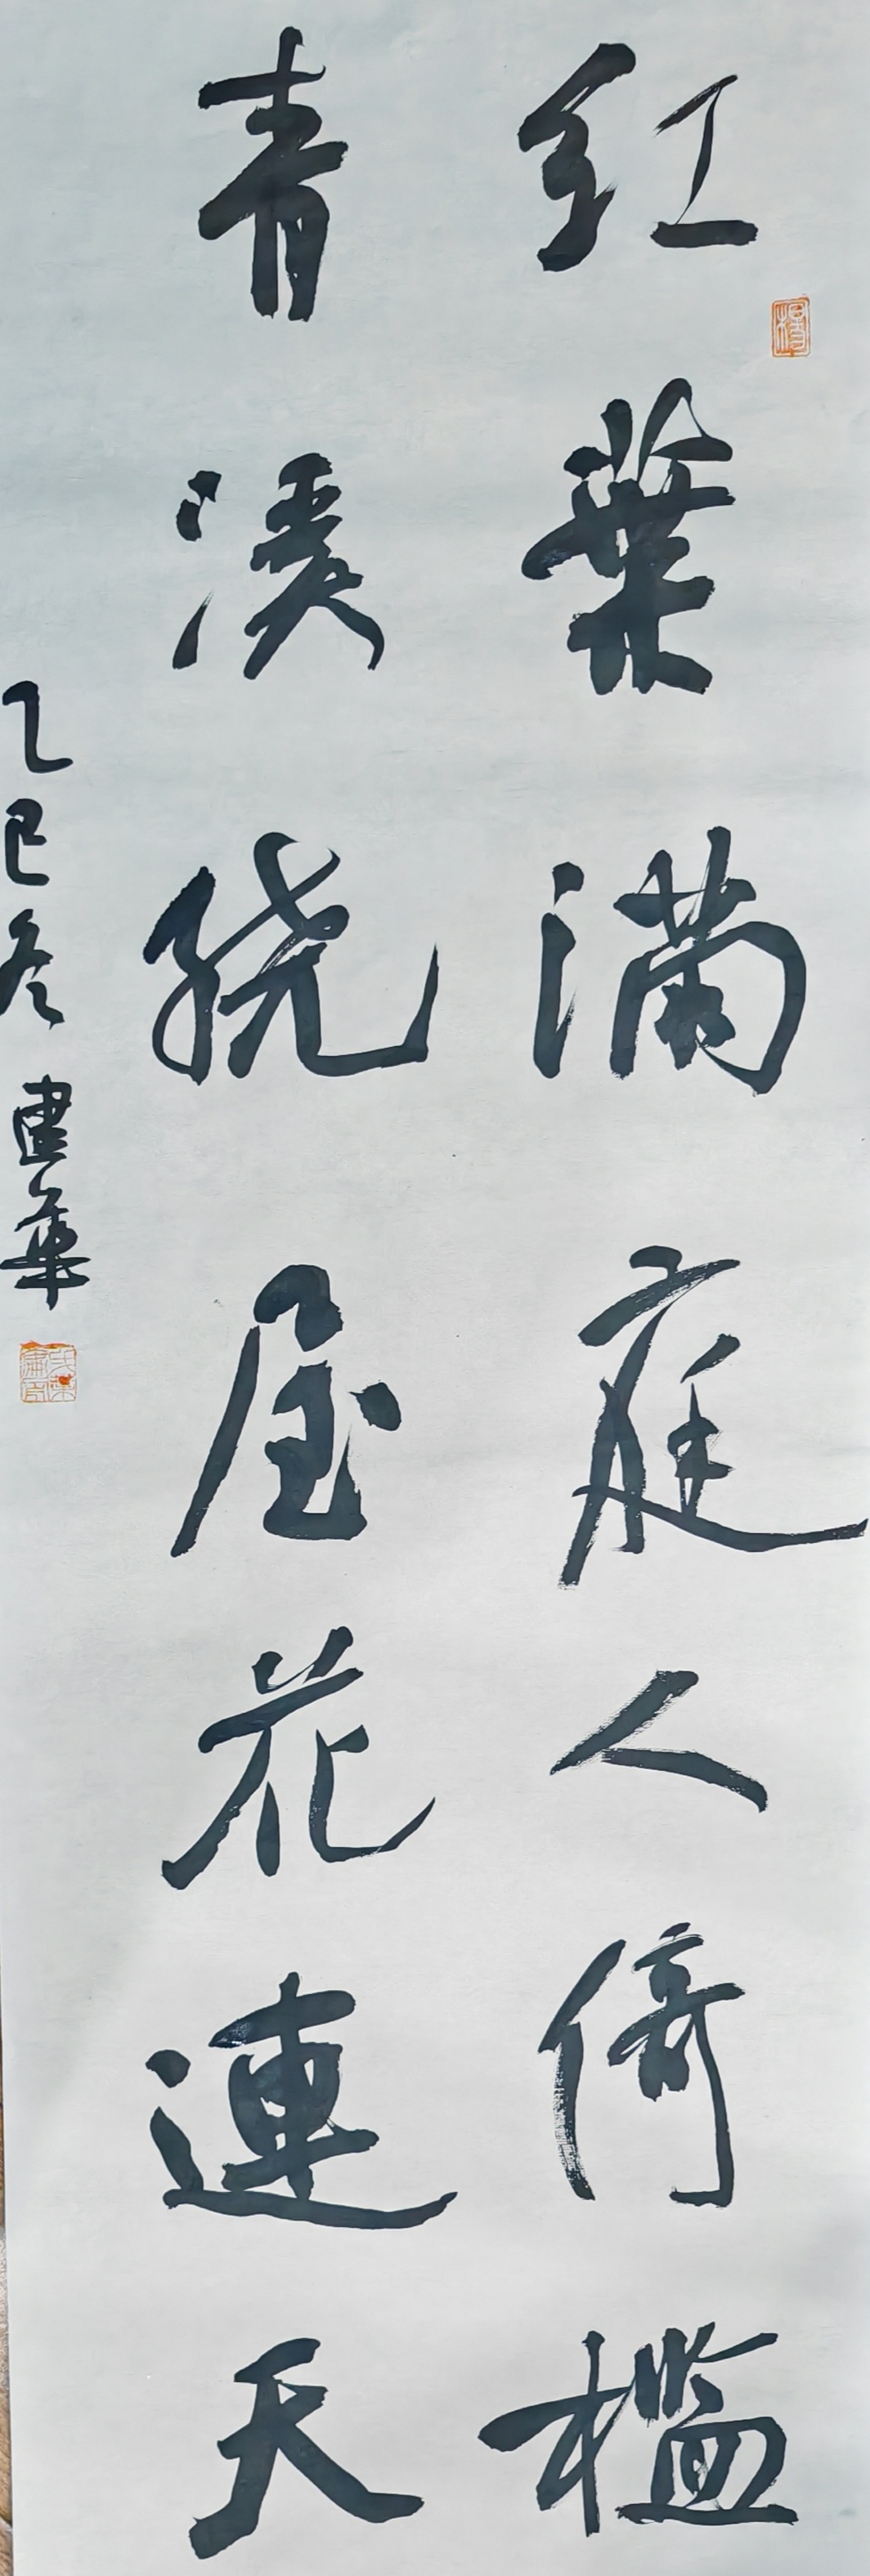 红葉满庭人倚檻
青溪繞屋花連天
乙巳冬 建華